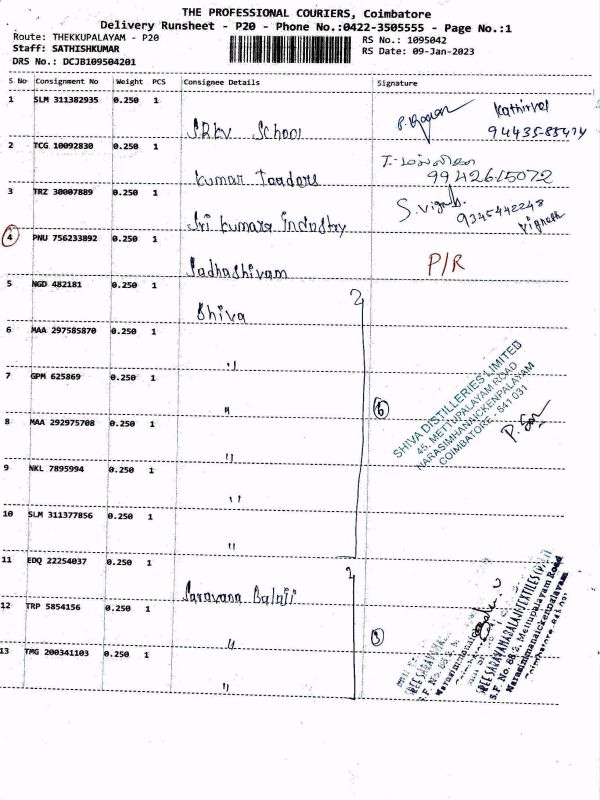 THE PROFESSIONAL COURIERS, Coimbatore
Delivery Runsheet - P20 - Phone No.:0422-3505555 - Page No.:1
Route: THEKKUPALAYAM - P20
RS No.: 1095042
Staff: SATHISHKUMAR
RS Date: 09-Jan-2023
DRS No.: DCJB109504201
S No Consignment No Weight PCS Consignee Details Signature
1 SLM 311382935 0.250 1
SRKV School
Kathirvel
2 TCG 10092830 0.250 1
Kumar Traders
9942615072
3 TRZ 30007889 0.250 1
Sri Kumara Industry
S. Vignesh.
9345442248
Vignesh
4 PNU 756233892 0.250 1
Sadhashivam
P/R
5 NGD 482181 0.250 1
Shiva
6 MAA 297585870 0.250 1
"
7 GPM 625869 0.250 1
"
6
SHIVA DISTILLERIES LIMITED
45, METTUPALAYAM ROAD
NARASIMHANAICKENPALAYAM
COIMBATORE - 641 031
8 MAA 292975708 0.250 1
"
9 NKL 7895994 0.250 1
"
10 SLM 311377856 0.250 1
"
11 EDQ 22254037 0.250 1
Saravana Balaji
12 TRP 5854156 0.250 1
"
3
SREE SARAVANABALAJI TEXTILES (P) LTD
S.F. No. 68/2, Mettupalayam Road
Narasimmanaickenpalayam
13 TMG 200341103 0.250 1
"